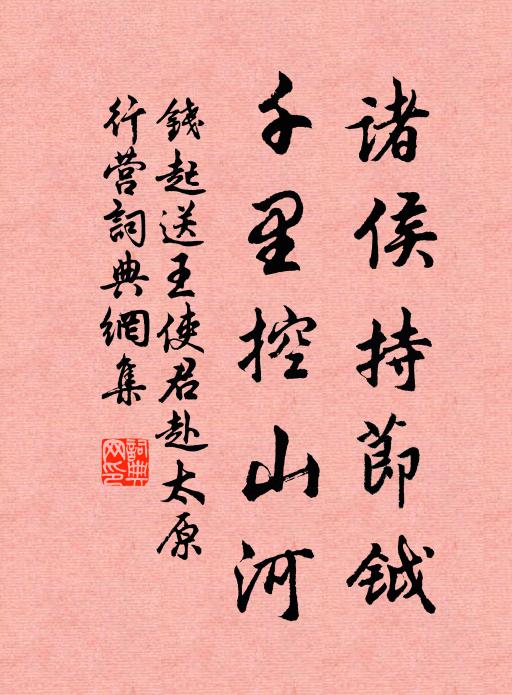 诸侯持節鉞
千里控山河
錢起送王使君赴太原
行营詞典網集
詞典網印